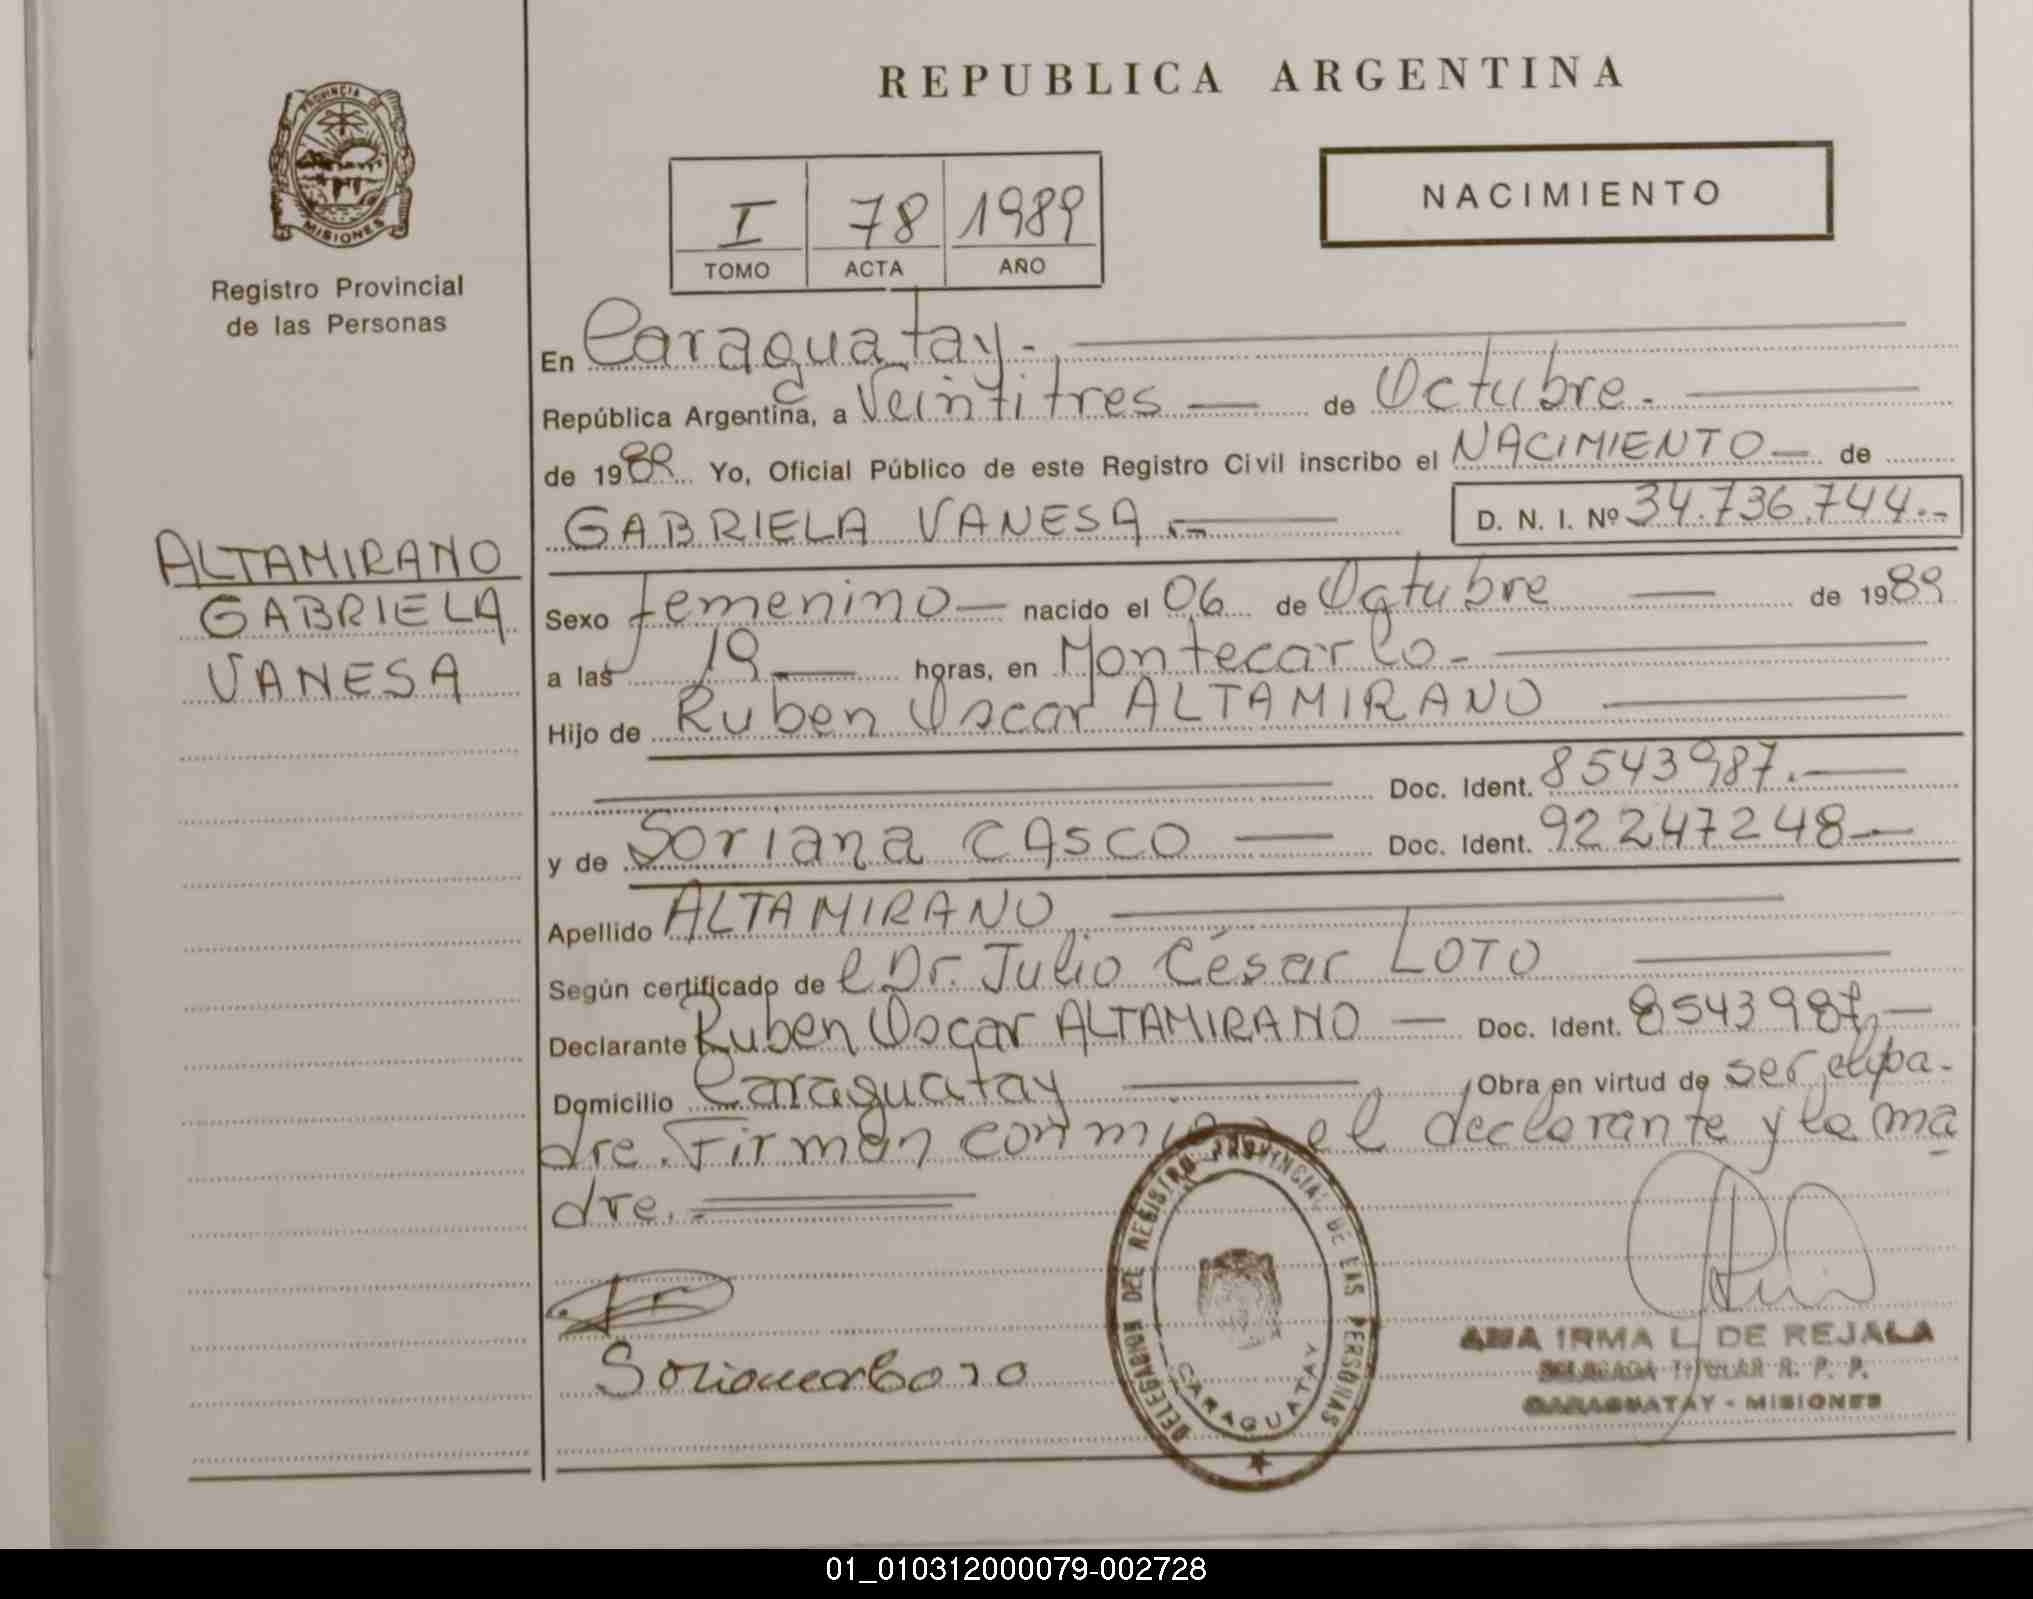 REPUBLICA ARGENTINA
PROVINCIA DE
MISIONES
Registro Provincial
de las Personas
NACIMIENTO
I 78 1989
TOMO ACTA AÑO
En Caraguatay.-
República Argentina, a Veintitres — de Octubre.-
de 1989 Yo, Oficial Público de este Registro Civil inscribo el NACIMIENTO — de
GABRIELA VANESA.- D. N. I. Nº 34.736.744.-
ALTAMIRANO
GABRIELA
VANESA
Sexo femenino — nacido el 06 de Octubre — de 1989
a las 19 — horas, en Montecarlo.-
Hijo de Ruben Oscar ALTAMIRANO
Doc. Ident. 8543987.-
y de Soriana CASCO — Doc. Ident. 92247248 —
Apellido ALTAMIRANO
Según certificado de el Dr. Julio César LOTO
Declarante Ruben Oscar ALTAMIRANO — Doc. Ident. 8543987.-
Domicilio Caraguatay — Obra en virtud de ser el pa-
dre. Firman conmigo el declarante y la ma
dre.-
DELEGACION DEL REGISTRO PROVINCIAL DE LAS PERSONAS
CARAGUATAY
ANA IRMA L. DE REJALA
DELEGADA TITULAR R. P. P.
CARAGUATAY - MISIONES
01_010312000079-002728